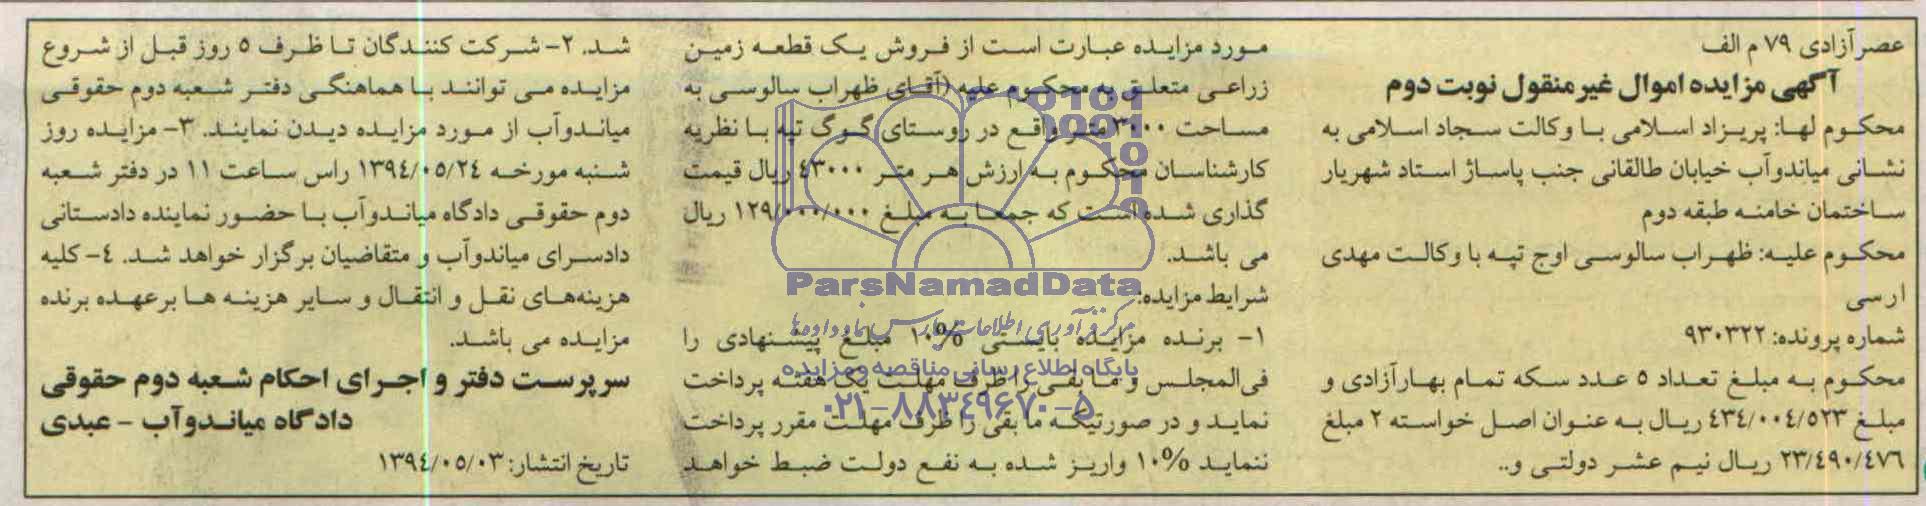 عصرآزادی ۷۹ م الف
آگهی مزایده اموال غیرمنقول نوبت دوم
محکوم لها: پریزاد اسلامی با وکالت سجاد اسلامی به
نشانی میاندوآب خیابان طالقانی جنب پاساژ استاد شهریار
ساختمان خامنه طبقه دوم
محکوم علیه: ظهراب سالوسی اوج تپه با وکالت مهدی
ارسی
شماره پرونده: ۹۳۰۳۲۲
محکوم به مبلغ تعداد ۵ عدد سکه تمام بهارآزادی و
مبلغ ۴۳۴/۰۰۴/۵۲۳ ریال به عنوان اصل خواسته ۲ مبلغ
۲۳/۴۹۰/۴۷۶ ریال نیم عشر دولتی و..
مورد مزایده عبارت است از فروش یک قطعه زمین
زراعی متعلق به محکوم علیه (آقای ظهراب سالوسی به
مساحت ۳۰۰۰ متر واقع در روستای گوگ تپه با نظریه
کارشناسان محکوم به ارزش هر متر ۴۳۰۰۰ ریال قیمت
گذاری شده است که جمعا به مبلغ ۱۲۹/۰۰۰/۰۰۰ ریال
می باشد.
شرایط مزایده:
۱- برنده مزایده بایستی ۱۰% مبلغ پیشنهادی را
فی‌المجلس و مابقی را ظرف مهلت یک هفته پرداخت
نماید و در صورتیکه مابقی را ظرف مهلت مقرر پرداخت
ننماید ۱۰% واریز شده به نفع دولت ضبط خواهد
شد. ۲- شرکت کنندگان تا ظرف ۵ روز قبل از شروع
مزایده می توانند با هماهنگی دفتر شعبه دوم حقوقی
میاندوآب از مورد مزایده دیدن نمایند. ۳- مزایده روز
شنبه مورخه ۱۳۹۴/۰۵/۲۴ راس ساعت ۱۱ در دفتر شعبه
دوم حقوقی دادگاه میاندوآب با حضور نماینده دادستانی
دادسرای میاندوآب و متقاضیان برگزار خواهد شد. ۴- کلیه
هزینه‌های نقل و انتقال و سایر هزینه ها برعهده برنده
مزایده می باشد.
سرپرست دفتر و اجرای احکام شعبه دوم حقوقی
دادگاه میاندوآب - عبدی
تاریخ انتشار: ۱۳۹۴/۰۵/۰۳
ParsNamadData
مرکز فرآوری اطلاعات پارس نماد داده‌ها
پایگاه اطلاع رسانی مناقصه و مزایده
۰۲۱-۸۸۳۴۹۶۷۰-۵